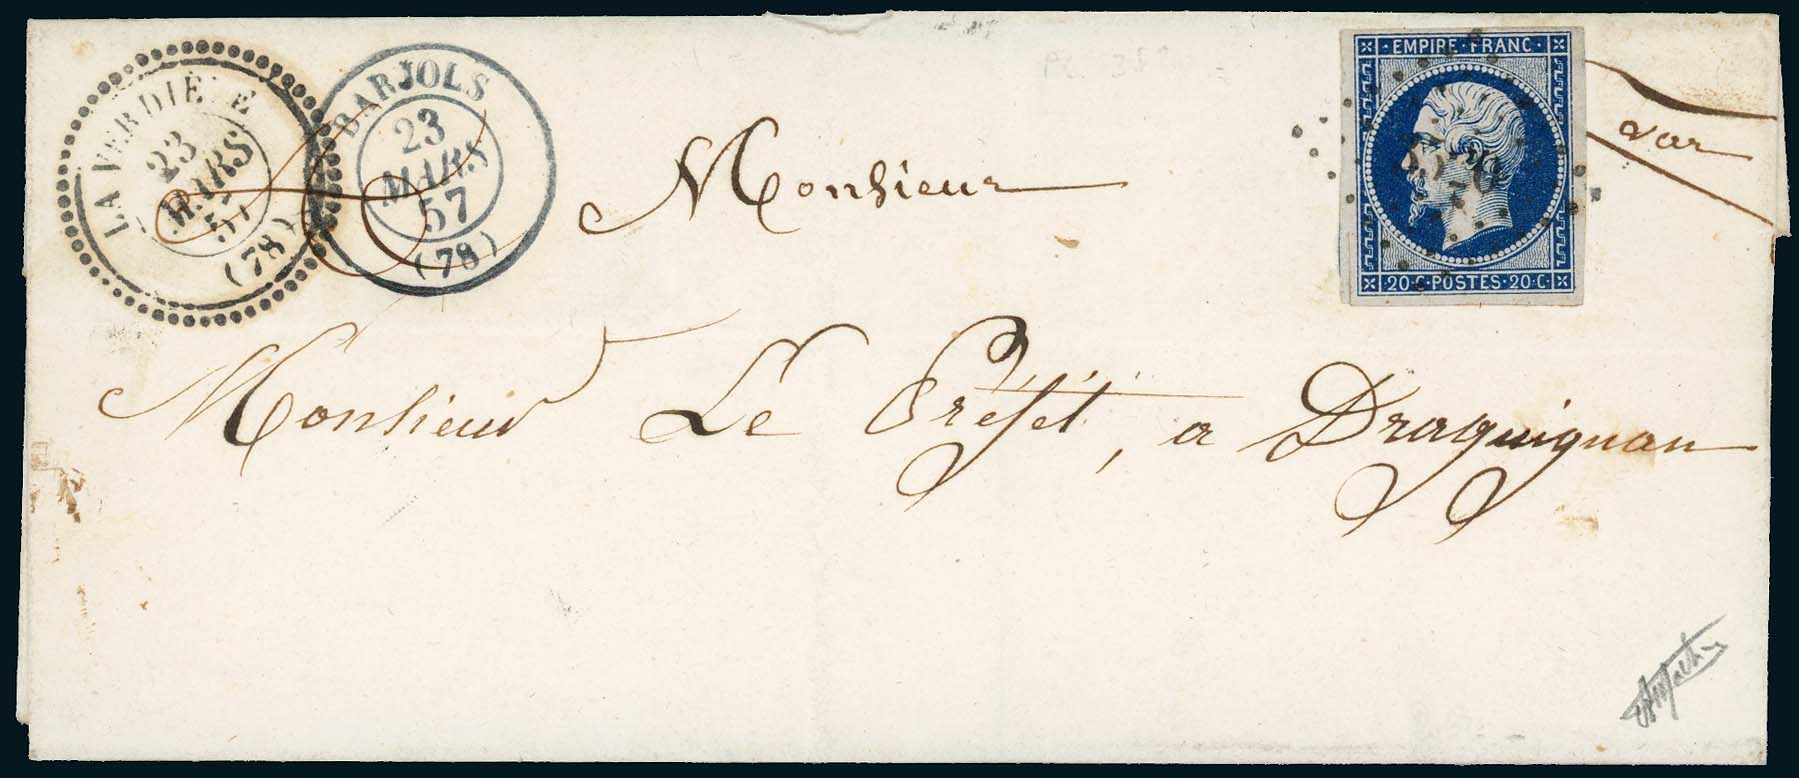 LA VERDIÈRE
23
MARS
57
(78)
BARJOLS
23
MARS
57
(78)
EMPIRE · FRANC ·
20 · C · POSTES · 20 · C
Var
Monsieur
Monsieur Le Préfét, a Draguignan